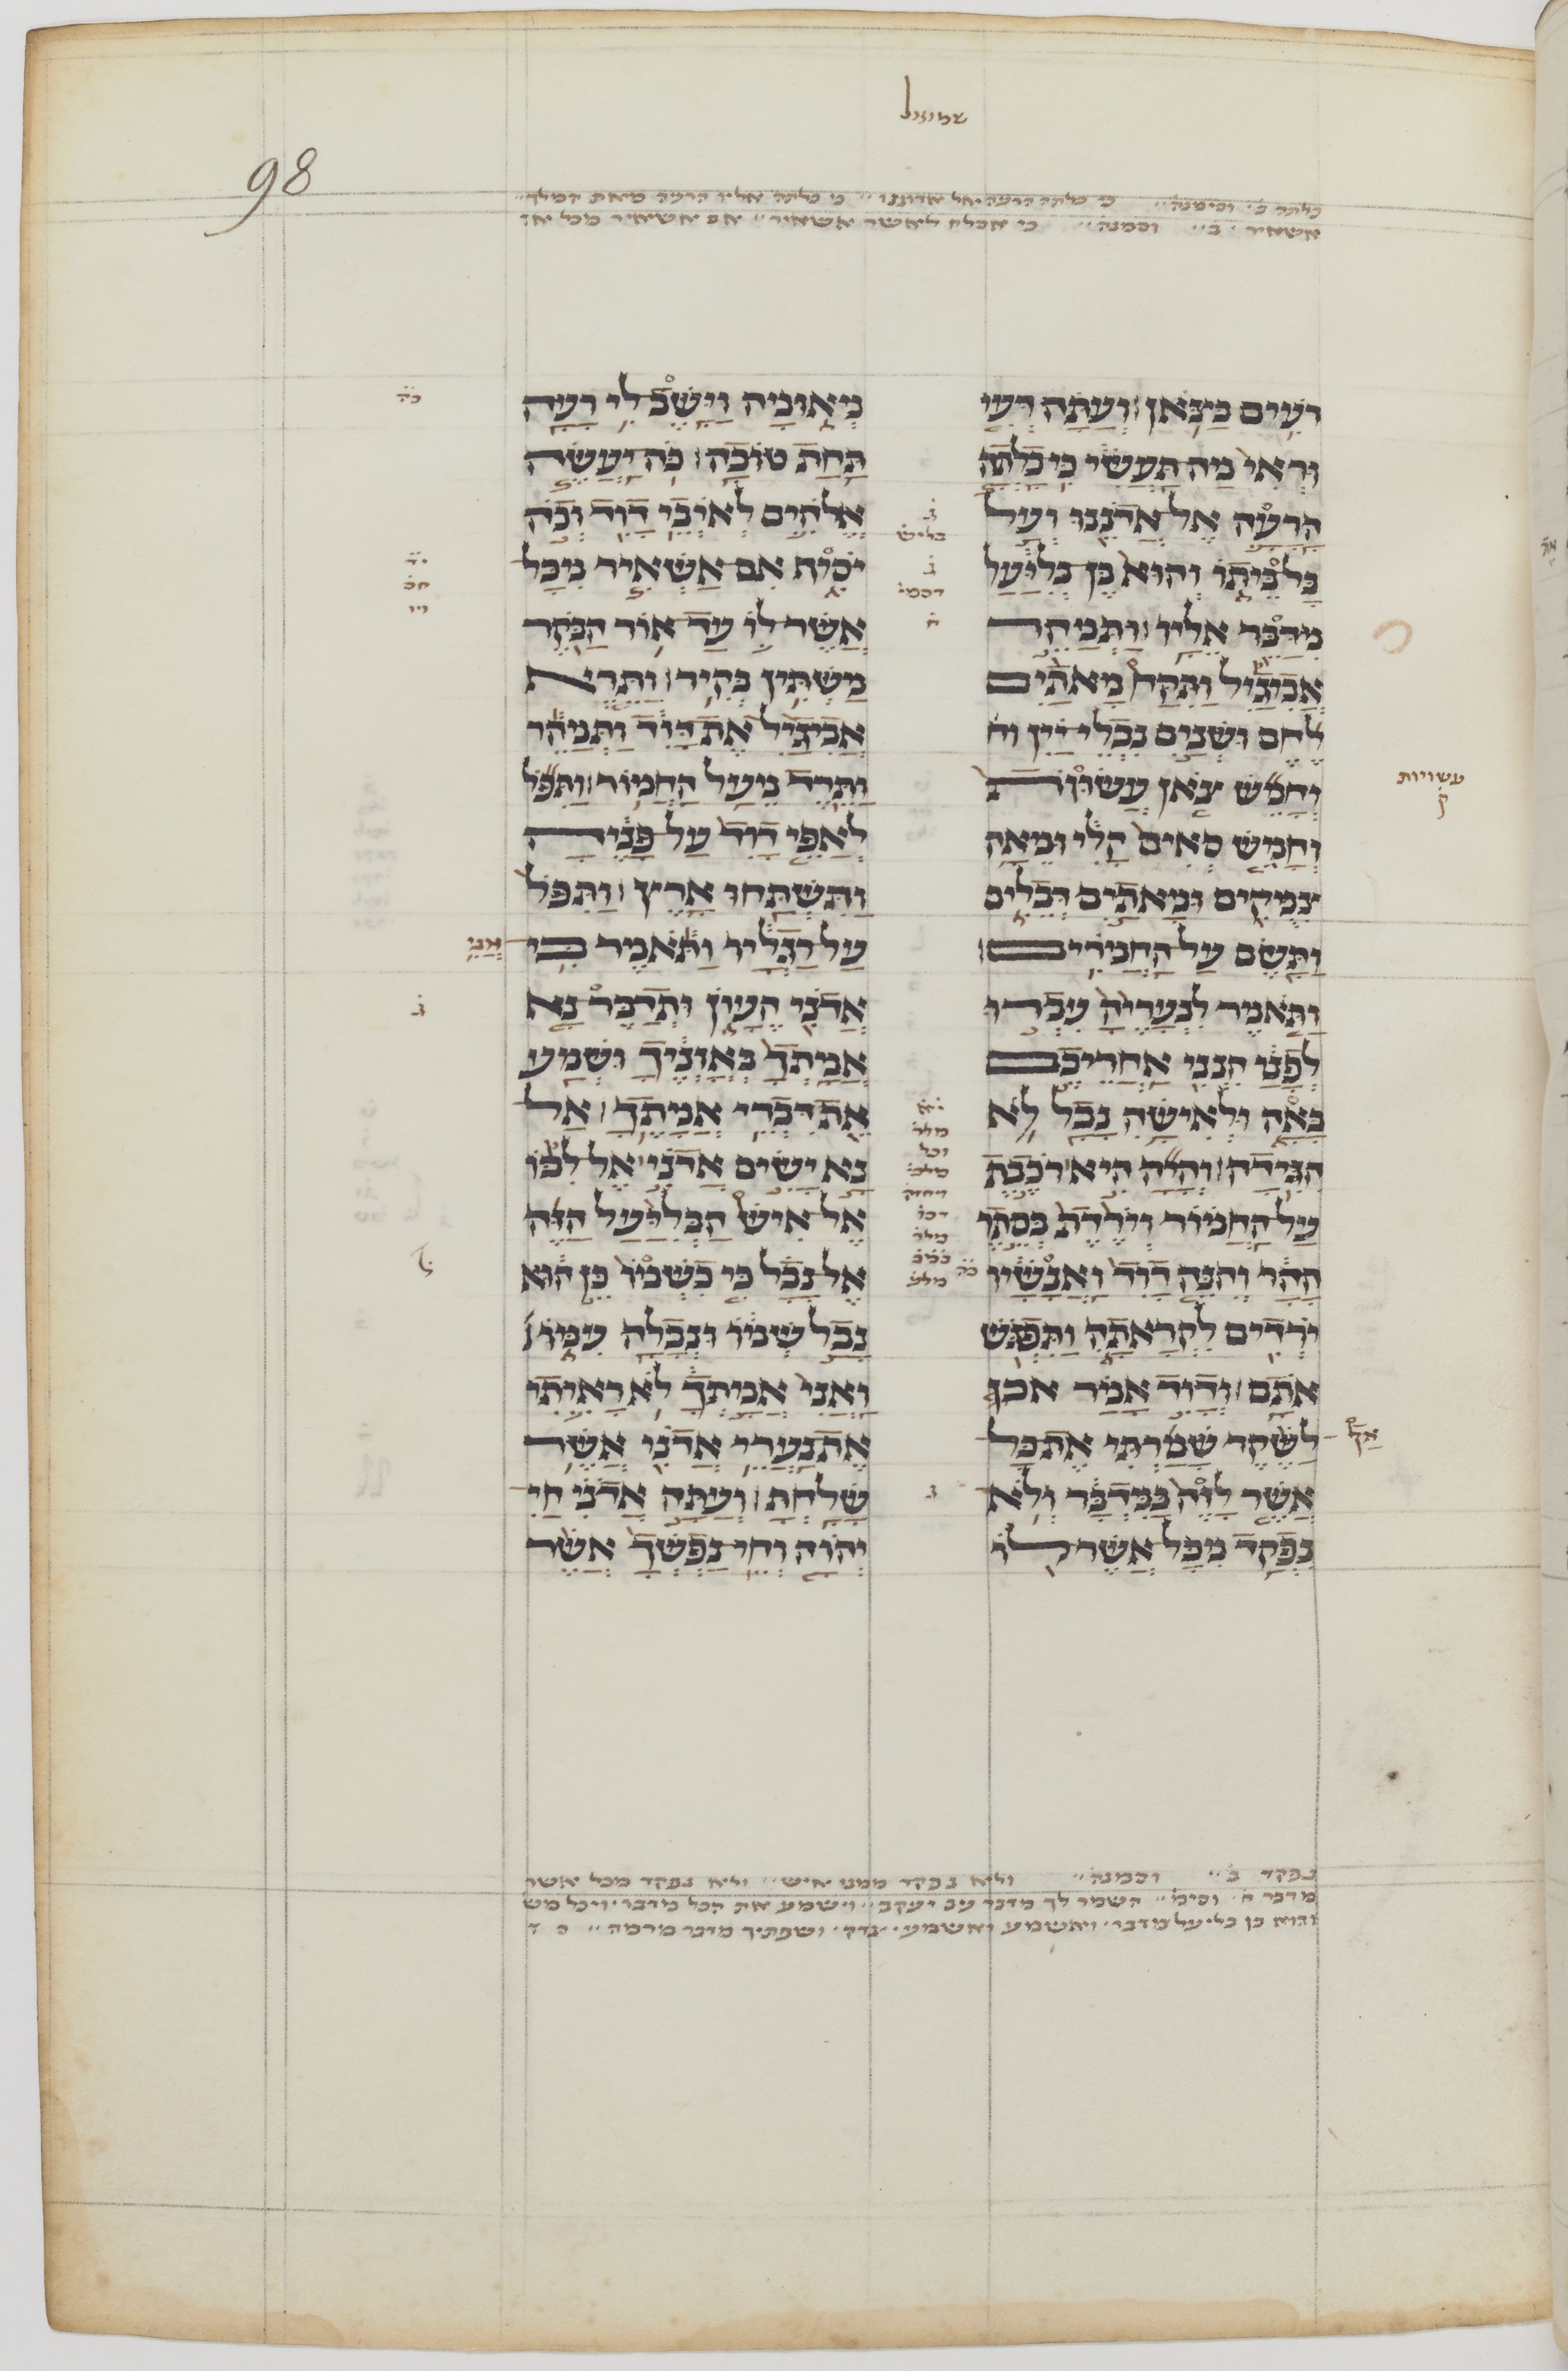 שמואל
98
כלתה ב׳ וסימנה׳ כי כלתה הרעה אל אדוננו׳ כי כלתה אליו הרעה מאת המלך
אשאיר ב׳ וסמנה׳ כי אסלח לאשר אשאיר׳ אם אשאיר מכל אש
רעים הצאן ועתה דעי
וראי מה תעשי כי כלתה
הרעה אל אדנינו ועל
כל ביתו והוא בן בליעל
מדבר אליו ותמהר
אביגיל ותקח מאתים
לחם ושנים נבלי יין וח
וחמש צאן עשוות
עשויות
ק
וחמש סאים קלי ומאה
צמקים ומאתים דבלים
ותשם על החמרים
ותאמר לנעריה עברו
לפני הנני אחריכם
באה ולאישה נבל לא
הגידה והיה היא רכבת
על החמור וירדת בסתר
ההר והנה דוד ואנשיו
ירדים לקראתה ותפגש
אתם ודוד אמר אך
לשקר שמרתי את כל
אשר לזה במדבר ולא
נפקד מכל אשר לו
מאומה וישב לי רעה
תחת טובה כה יעשה
אלהים לאיבי דוד וכה
יסיף אם אשאיר מכל
אשר לו עד אור הבקר
משתין בקיר ותרא
אביגיל את דוד ותמהר
ותרד מעל החמור ותפל
לאפי דוד על פניה
ותשתחו ארץ ותפל
על רגליו ותאמר בי אני
אדני העון ותדבר נא
אמתך באזניך ושמע
את דברי אמתך אל
נא ישים אדני אל לבו
אל איש הבליעל הזה
אל נבל כי כשמו כן הוא
נבל שמו ונבלה עמו
ואני אמתך לא ראיתי
את נערי אדני אשר
שלחת ועתה אדני חי
יהוה וחי נפשך אשר
נפקד ב׳ וסמנה׳ ולא נפקד ממנו איש׳ ולא נפקד מכל אשר
מדבר ה׳ וסימ׳ השמר לך מדבר עם יעקב׳ וישמע את הכל מדבר
והוא בן בליעל מדבר׳ ואשמע ושפתיך מדבר מרמה